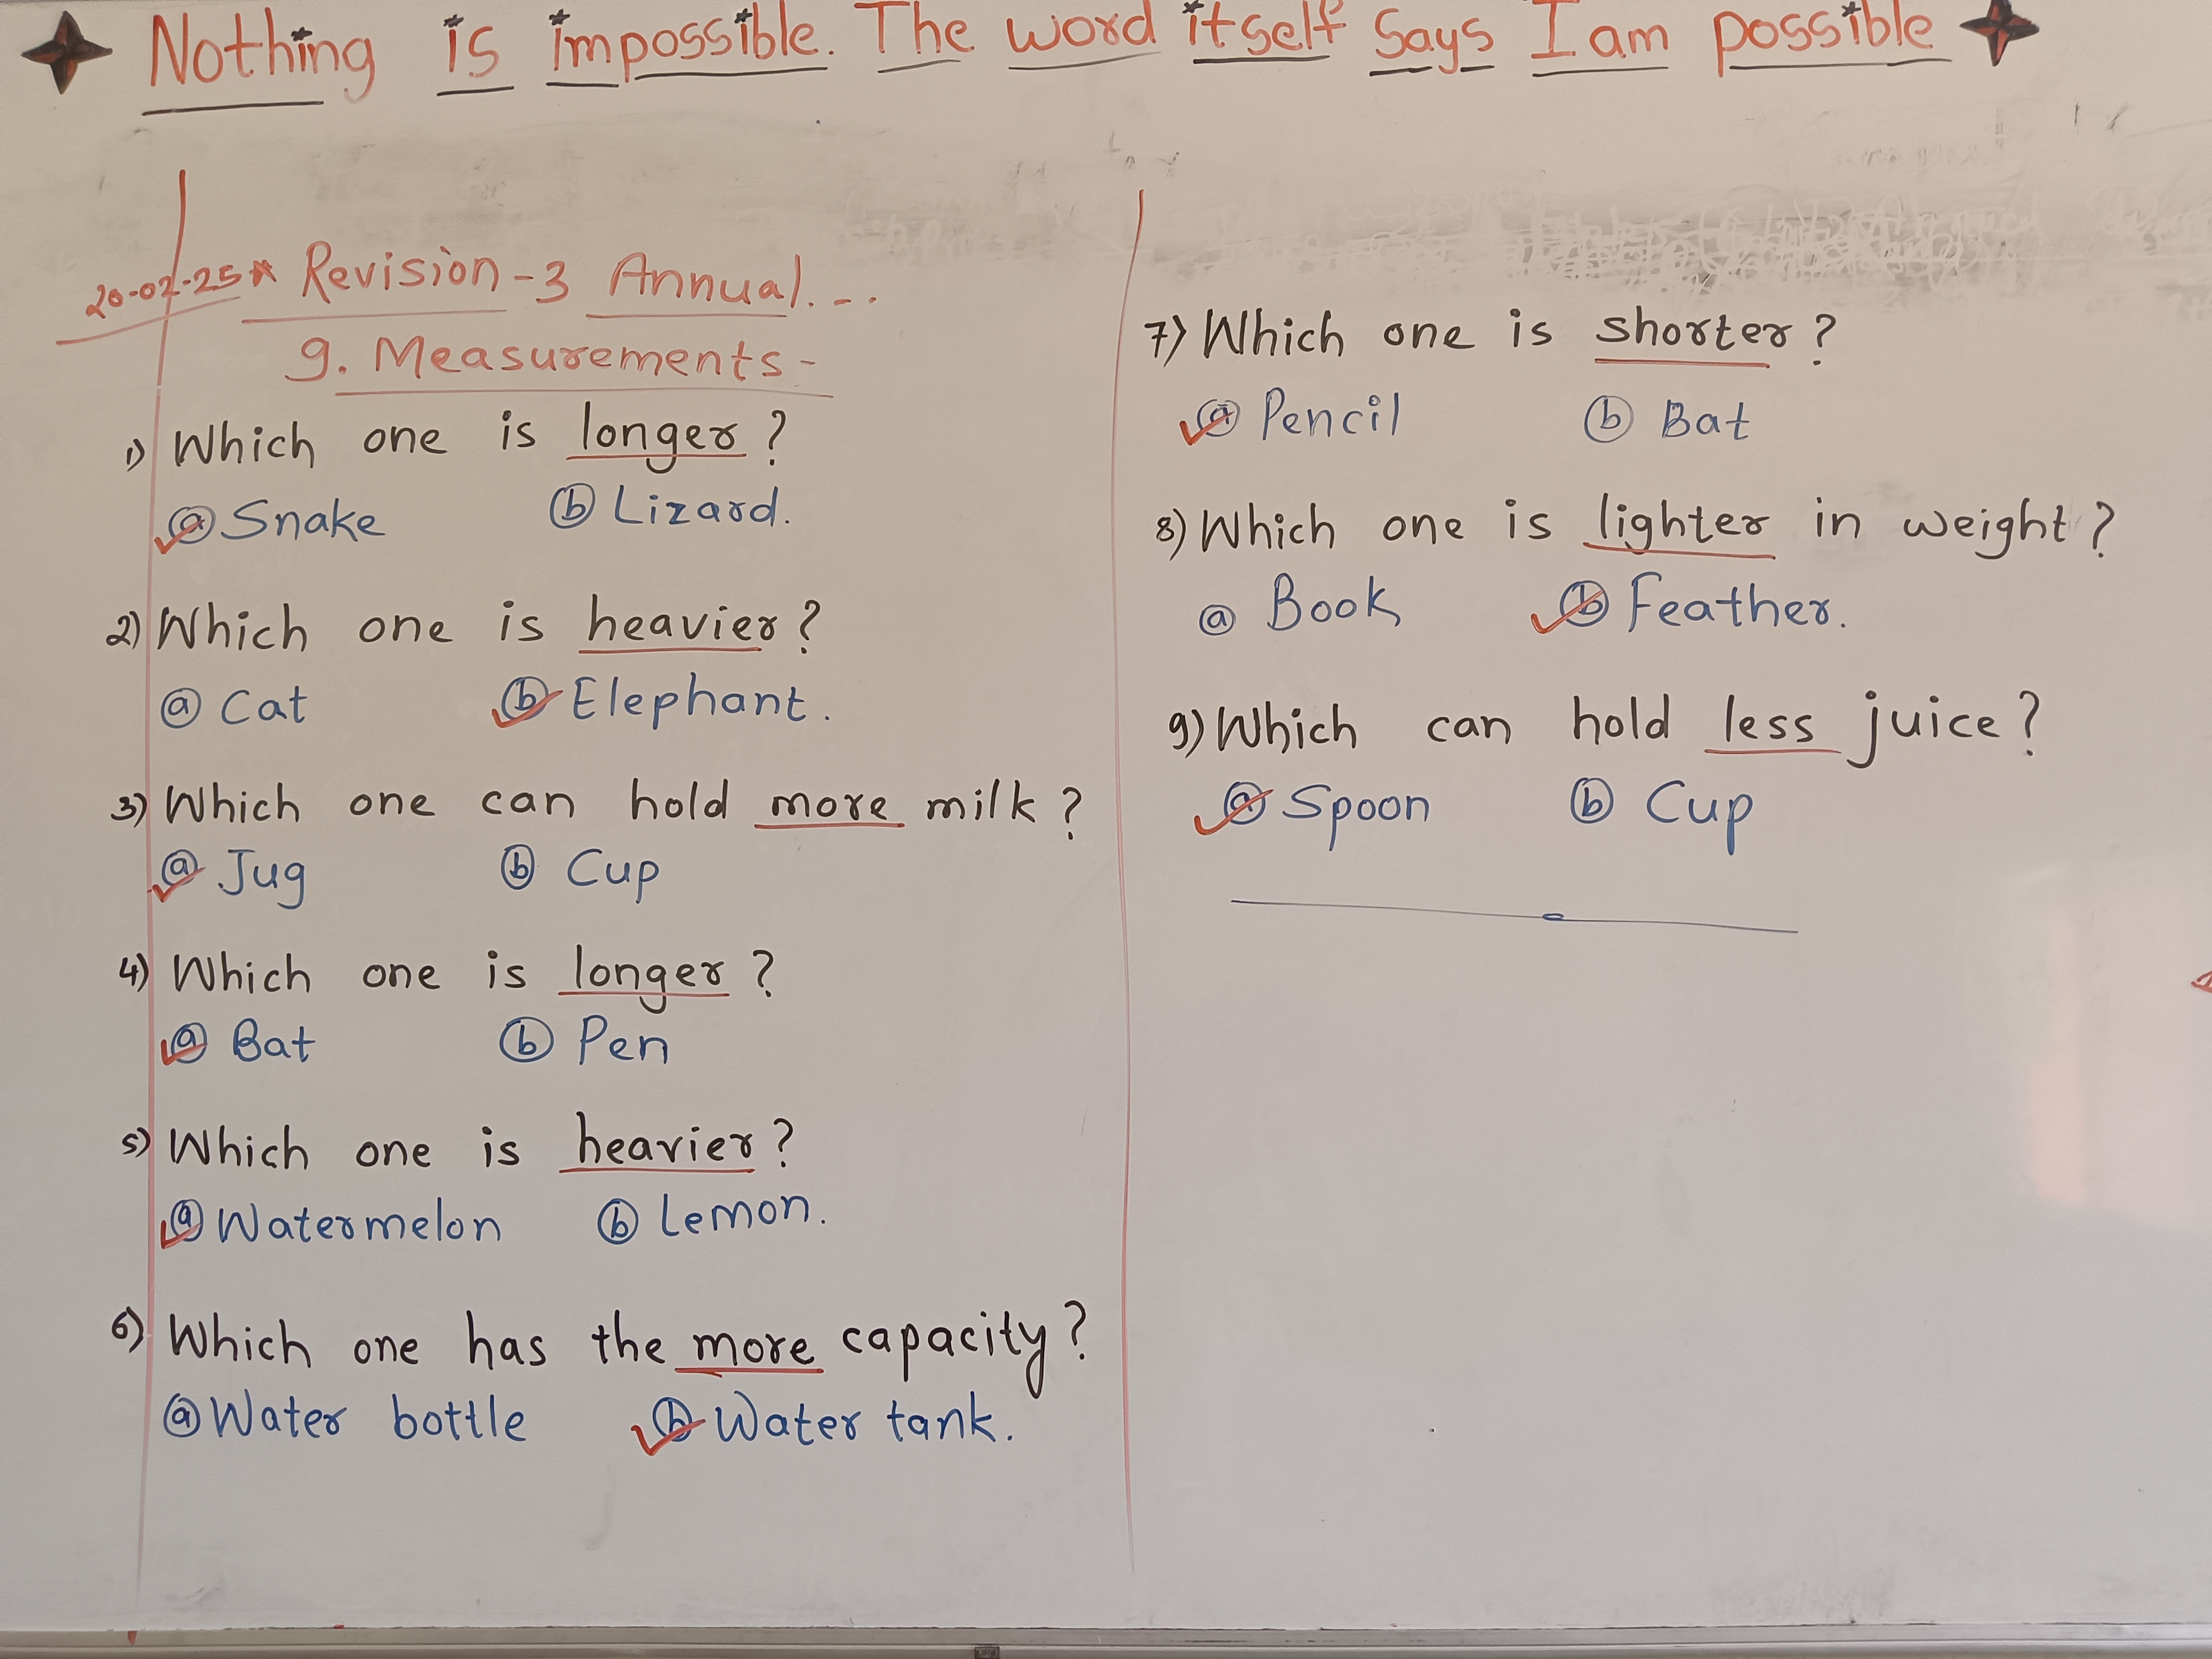 Nothing is impossible. The word itself Says I am possible
20-02-25 * Revision-3 Annual...
9. Measurements-
1) Which one is longer?
ⓐ Snake ⓑ Lizard.
2) Which one is heavier?
ⓐ Cat ⓑ Elephant.
3) Which one can hold more milk?
ⓐ Jug ⓑ Cup
4) Which one is longer?
ⓐ Bat ⓑ Pen
5) Which one is heavier?
ⓐ Watermelon ⓑ Lemon.
6) Which one has the more capacity?
ⓐ Water bottle ⓑ Water tank.
7) Which one is shorter?
ⓐ Pencil ⓑ Bat
8) Which one is lighter in weight?
ⓐ Book ⓑ Feather.
9) Which can hold less juice?
ⓐ Spoon ⓑ Cup